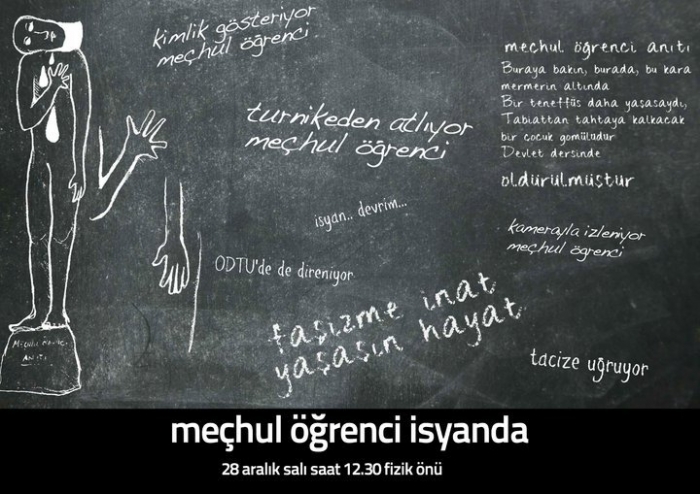 kimlik gösteriyor
meçhul öğrenci
meçhul öğrenci anıtı
Buraya bakın, burada, bu kara
mermerin altında
Bir teneffüs daha yaşasaydı,
Tabiattan tahtaya kalkacak
bir çocuk gömülüdür
Devlet dersinde
öldürülmüştür
turnikeden atlıyor
meçhul öğrenci
isyan.. devrim...
kamerayla izleniyor
meçhul öğrenci
ODTU'de de direniyor
faşizme inat
yaşasın hayat
tacize uğruyor
ANITI
meçhul öğrenci isyanda
28 aralık salı saat 12.30 fizik önü